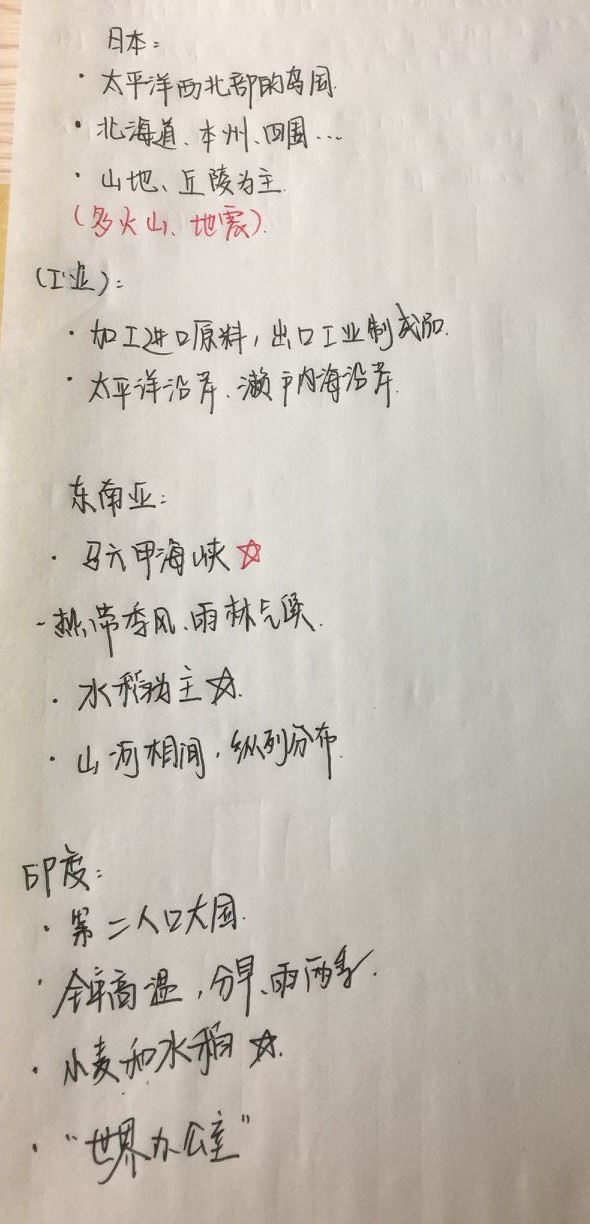 日本：
·太平洋西北部的岛国.
·北海道、本州、四国…
·山地、丘陵为主.
(多火山、地震).
(工业)：
·加工进口原料，出口工业制成品.
·太平洋沿岸、濑户内海沿岸.
东南亚：
·马六甲海峡☆
-热带季风、雨林气候.
·水稻为主☆.
·山河相间，纵列分布.
印度：
·第二人口大国.
·全年高温，分旱、雨两季.
·小麦和水稻☆.
·“世界办公室”